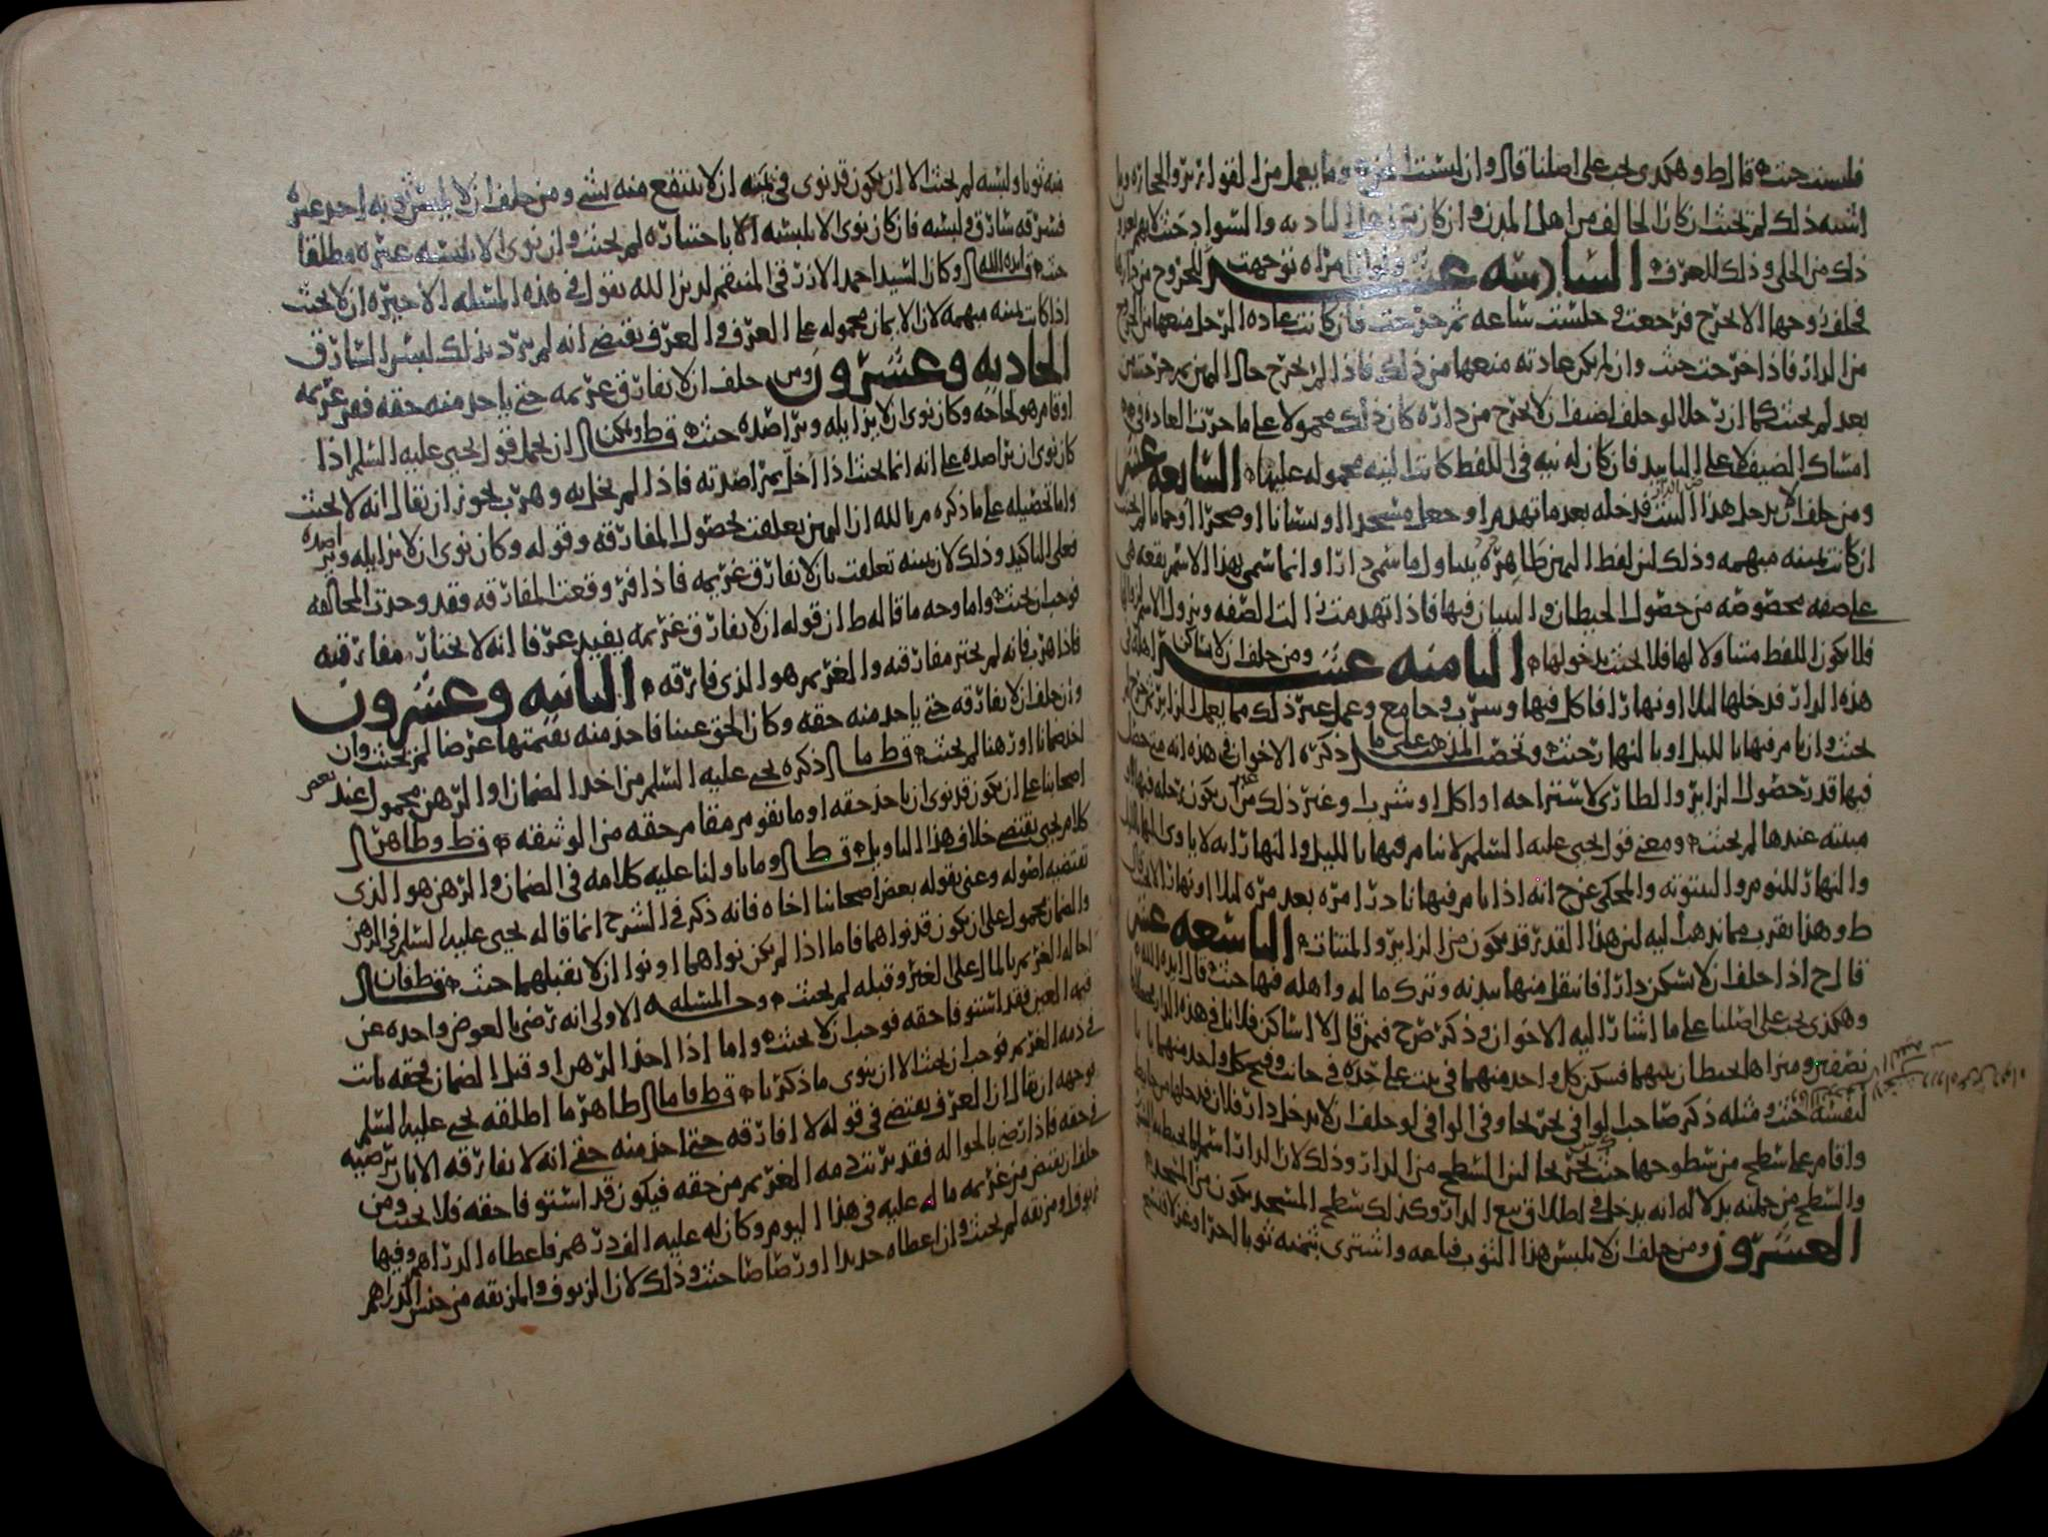 فلبست حنث قال ط وهكذى يجب على اصلنا قال وان لبست الخرز وما يعمل من اللغو ابريز والحجازه وما
اشبه ذلك لم يحنث ان كان الحالف من اهل المدن وان كان من اهل البادية والسواد حنث لانهم يعدون
ذلك من الحلي وذلك للعرف السادسة عشر ولو ان امراه توجهت للخروج من داره
فحلف زوجها الا تخرج فرجعت وجلست ساعه ثم خرجت فان كانت عاده الرجل منعها من الخروج
من الدار فاذا خرجت حنث وان لم يكن عادته منعها من ذلك فاذا لم تخرج حال اليمين ثم خرجت من
بعد لم يحنث كما ان رجلا لو حلف لضيف ان لا يخرج من داره كان ذلك محمولا على ما جرت العاده في
امساك الضيف لا على التابيد فان كان له نيه في اللفط كانت النيه محموله عليها السابعة عشر
ومن حلف ان لا يدخل هذا البيت فدخله بعد ما تهدم او جعل مسجدا او بستانا او صحرا او حماما لم يحنث
ان كانت يمينه مبهمه وذلك لان لفظ اليمين ظاهره وانما سمي دارا وانما سمى بهذا الاسم بقعه هي
على صفه مخصوصه من حصول الحيطان والبنيان فيها فاذا تهدمت زالت الصفه ويزول الاسم
فلا يكون اللفط متناولا لها فلا يحنث بدخولها الثامنة عشر ومن حلف ان لا يساكن اهله في
هذه الدار فدخلها ليلا او نهارا فاكل فيها وشرب وجامع وعمل غير ذلك مما يعمل الزاير ثم خرج لم
يحنث وان نام فيها بالليل او بالنهار حنث وتخص المذهب على ما ذكره الاخوان في هذه انه متى حصل
فيها قدر حصول الزاير والطارى لاستراحه او اكل او شرب او غير ذلك من غير ان يكون رحله فيها او
مبيته عندها لم يحنث ومعنى قول يحيى عليه السلم لا ينام فيها بالليل والنهار انه لا ياوى اليها بالليل
والنهار للنوم والبيتوته والمحكي عن ح انه اذا نام فيها نادرا مره بعد مره ليلا او نهارا لا يحنث قال
ط وهذا يقرب مما نذهب اليه لان هذا القدر قد يكون من الزاير والمنتاب التاسعة عشر
قال ح اذا حلف ان لا يسكن دارا فانتقل منها ببدنه وترك ماله واهله فيها حنث قال ايده الله
وهكذى يجب على اصلنا على ما اشار اليه الاخوان وذكر ص ح فيمن قال لا اساكن فلانا في هذه الدار
نصفين وميزاها بحيطان بينهما فسكن كل واحد منهما في بيت على حده في جانب وفتح كل واحد منهما بابا
لنفسه حنث ومثله ذكر صاحب الوافي في يجرى وفي الوافي لو حلف ان لا يدخل دار فلان فدخلها من حايط
واقام على سطح من سطوحها حنث لان السطح من الدار وذلك لان الدار اسم لما تحيط به
والسطح من جملته بدلاله انه يدخل في اطلاق بيع الدار وكذلك سطح المسجد يكون من المسجد
العشرون ومن حلف ان لا يلبس هذا الثوب فباعه واشترى بثمنه ثوبا اخر او غزلا فنسج
منه ثوبا ولبسه لم يحنث الا ان يكون قد نوى في يمينه ان لا ينتفع منه بشي ومن حلف ان لا يلبس ثوبه احد غيره
فسرقه سارق فلبسه فان كان نوى الا يلبسه الا باختياره لم يحنث وان نوى الا يلبسه غيره مطلقا
حنث قال ايده الله وكان السيد احمد الازرقي المنتضم لدين الله يقول في هذه المسله الاخيره ان لا يحنث
اذا كانت يمينه مبهمه لان الايمان محموله على العرف والعرف يقتضي انه لم يرد بذلك لبس السارق
الحاديه وعشرون ومن حلف ان لا يفارق غريمه حتى ياخذ منه حقه ففر غريمه
او قام هو لحاجه وكان نوى ان لا يزايله ويراصده حنث ق ط ويمكن ان يحمل قول يحيى عليه السلم اذا
كان نوى ان يراصده على انه انما يحنث اذا اخل بمراصدته فاذا لم يخل به وهرب يجوز ان يقال انه لا يحنث
واما تحصيله على ما ذكره م بالله ان اليمين تعلقت بحصول المفارقه وقوله وكان نوى ان لا يزايله ويراصده
فعلى التاكيد وذلك لان يمينه تعلقت بان لا يفارق غريمه فاذا فر وقعت المفارقه فقد وجدت المخالفه
فوجب ان يحنث واما وجه ما قاله ط ان قوله ان لا يفارق غريمه يفيد عرفا انه لا يختار مفارقته
فاذا هرب فانه لم يختر مفارقته والغريم هو الذى فارقه الثانيه وعشرون
وان حلف ان لا يفارقه حتى ياخذ منه حقه وكان الحق عينا فاخذ منه بقيمتها عرضا لم يحنث وان
اخذ ضمانا او رهنا لم يحنث ق ط ما ذكره يحيى عليه السلم من اخذ الضمان او الرهن محمول عند بعض
اصحابنا على ان يكون قد نوى ان ياخذ حقه او ما يقوم مقام حقه من الوثيقه ق ط وظاهر
كلام يحيى يقتضي خلاف هذا التاويل ق ط وما تاولنا عليه كلامه في الضمان والرهن هو الذى
تقتضيه اصوله وعنى بقوله بعض اصحابنا اخاه فانه ذكر في الشرح انما قاله يحيى عليه السلم في الرهن
والضمان محمول على ان يكون قد نواهما فاما اذا لم يكن نواهما او نوا ان لا يقبلهما حنث ق ط فان
احاله الغريم بالمال على الغير وقبله لم يحنث وجه المسله الاولى انه رضى بالعوض واخذه عن
قيمه العين فقد استوفا حقه فوجب ان لا يحنث واما اذا اخذ الرهن او قبل الضمان فحقه ثابت
في ذمه الغريم فوجب ان يحنث الا ان ينوى ما ذكرنا ق ط فاما ظاهر ما اطلقه يحيى عليه السلم
فوجهه ان يقال ان العرف يقتضي في قوله لا افارقه حتى اخذ منه حقي انه لا يفارقه الا بان يرضيه
في حقه فاذا رضي بالحواله فقد برئت ذمه الغريم من حقه فيكون قد استوفا حقه فلا يحنث ومن
حلف ان يقبض من غريمه ماله عليه في هذا اليوم وكان له عليه الف درهم فاعطاه الدراهم وفيها
زيوف او مزبقه لم يحنث وان اعطاه حديدا او رصاصا حنث وذلك لان الزيوف والمزبقه من جنس الدراهم